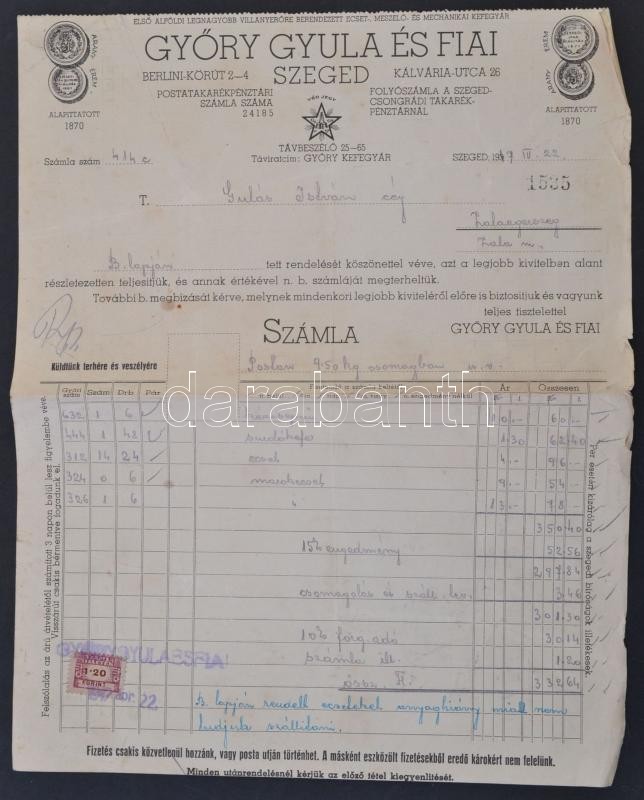 ELSŐ ALFÖLDI LEGNAGYOBB VILLANYERŐRE BERENDEZETT ECSET-, MESZELŐ- ÉS MECHANIKAI KEFEGYÁR
GYŐRY GYULA ÉS FIAI
BERLINI-KÖRÚT 2—4 SZEGED KÁLVÁRIA-UTCA 26
POSTATAKARÉKPÉNZTÁRI
SZÁMLA SZÁMA
24185
FOLYÓSZÁMLA A SZEGED-
CSONGRÁDI TAKARÉK-
PÉNZTÁRNÁL
ARANY ÉREM
ARANY ÉREM
ALAPITTATOTT
1870
ALAPITTATOTT
1870
VÉDJEGY
TÁVBESZÉLŐ 25—65
Táviratcim: GYŐRY KEFEGYÁR
Számla szám 414 c
SZEGED, 1947 IV. 22.
1535
T. Gulás István cég
Zalaegerszeg
Zala m.
B. lapján tett rendelését köszönettel véve, azt a legjobb kivitelben alant
részletezetten teljesitjük, és annak értékével n. b. számláját megterheltük.
További b. megbizását kérve, melynek mindenkori legjobb kiviteléről előre is biztositjuk és vagyunk
teljes tisztelettel
SZÁMLA GYŐRY GYULA ÉS FIAI
Küldtük terhére és veszélyére
9.50 kg csomagban
Gyári szám Szám Drb Pár Ár Összesen
632 1 6 10.- 60.-
444 1 48 surolókefe 1.30 62.40
312 14 24 ecset 4.- 96.-
324 0 6 9.- 54.-
326 1 6 " 13.- 78.-
350.40
15% engedmény 52.56
297.84
csomagolás és száll. lev. 3.46
301.30
10% forg. adó 30.14
számla ill. 1.20
össz. Ft. 332.64
GYŐRY GYULA ÉS FIAI
1·20
FORINT
947 ápr. 22
B. lapján rendelt ecseteket anyaghiány miatt nem
tudjuk szállitani.
Felszólalás az árú átvételétől számitott 3 napon belül lesz figyelembe véve.
Visszárút csakis bérmentve fogadunk el.
Per esetén kizárólag a szegedi biróságok illetékesek.
Fizetés csakis közvetlenül hozzánk, vagy posta utján történhet. A másként eszközölt fizetésekből eredő károkért nem felelünk.
Minden utánrendelésnél kérjük az előző tétel kiegyenlitését.
darabanth